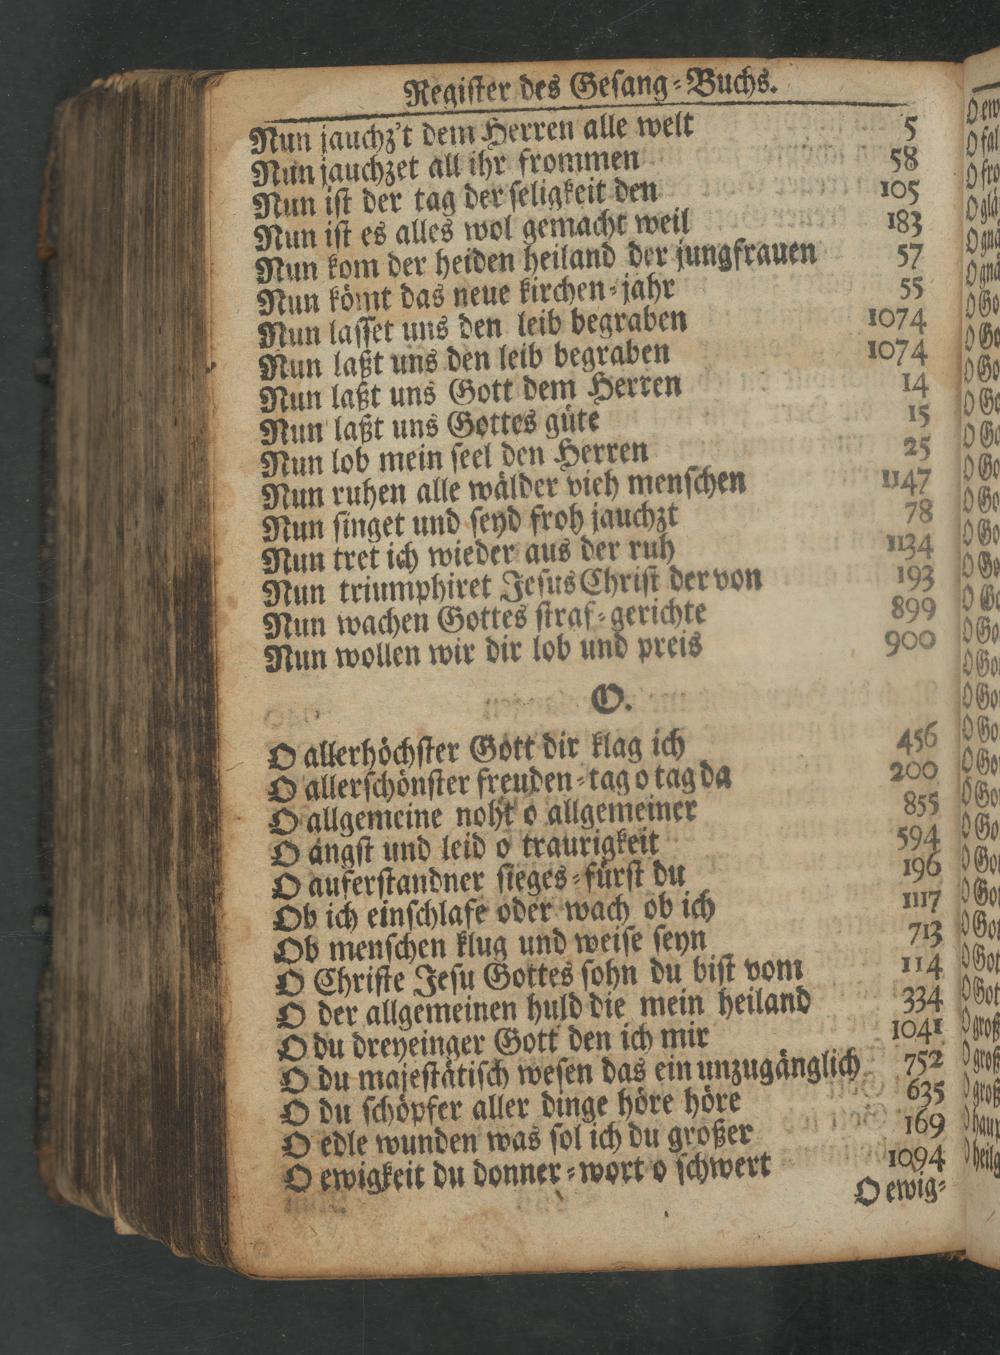 Register des Gesang-Buchs.
Nun jauchz't dem Herren alle welt 5
Nun jauchzet all ihr frommen 58
Nun ist der tag der seligkeit den 105
Nun ist es alles wol gemacht weil 183
Nun kom der heiden heiland der jungfrauen 57
Nun kömt das neue kirchen-jahr 55
Nun lasset uns den leib begraben 1074
Nun laßt uns den leib begraben 1074
Nun laßt uns Gott dem Herren 14
Nun laßt uns Gottes güte 15
Nun lob mein seel den Herren 25
Nun ruhen alle wälder vieh menschen 1147
Nun singet und seyd froh jauchzt 78
Nun tret ich wieder aus der ruh 1134
Nun triumphiret Jesus Christ der von 193
Nun wachen Gottes straf-gerichte 899
Nun wollen wir dir lob und preis 900
O.
O allerhöchster Gott dir klag ich 456
O allerschönster freuden-tag o tag da 200
O allgemeine noht o allgemeiner 855
O angst und leid o traurigkeit 594
O auferstandner sieges-fürst du 196
Ob ich einschlafe oder wach ob ich 1117
Ob menschen klug und weise seyn 713
O Christe Jesu Gottes sohn du bist vom 114
O der allgemeinen huld die mein heiland 334
O du dreyeinger Gott den ich mir 1041
O du majestätisch wesen das ein unzugänglich 752
O du schöpfer aller dinge höre höre 635
O edle wunden was sol ich du großer 169
O ewigkeit du donner-wort o schwert 1094
O ewig-